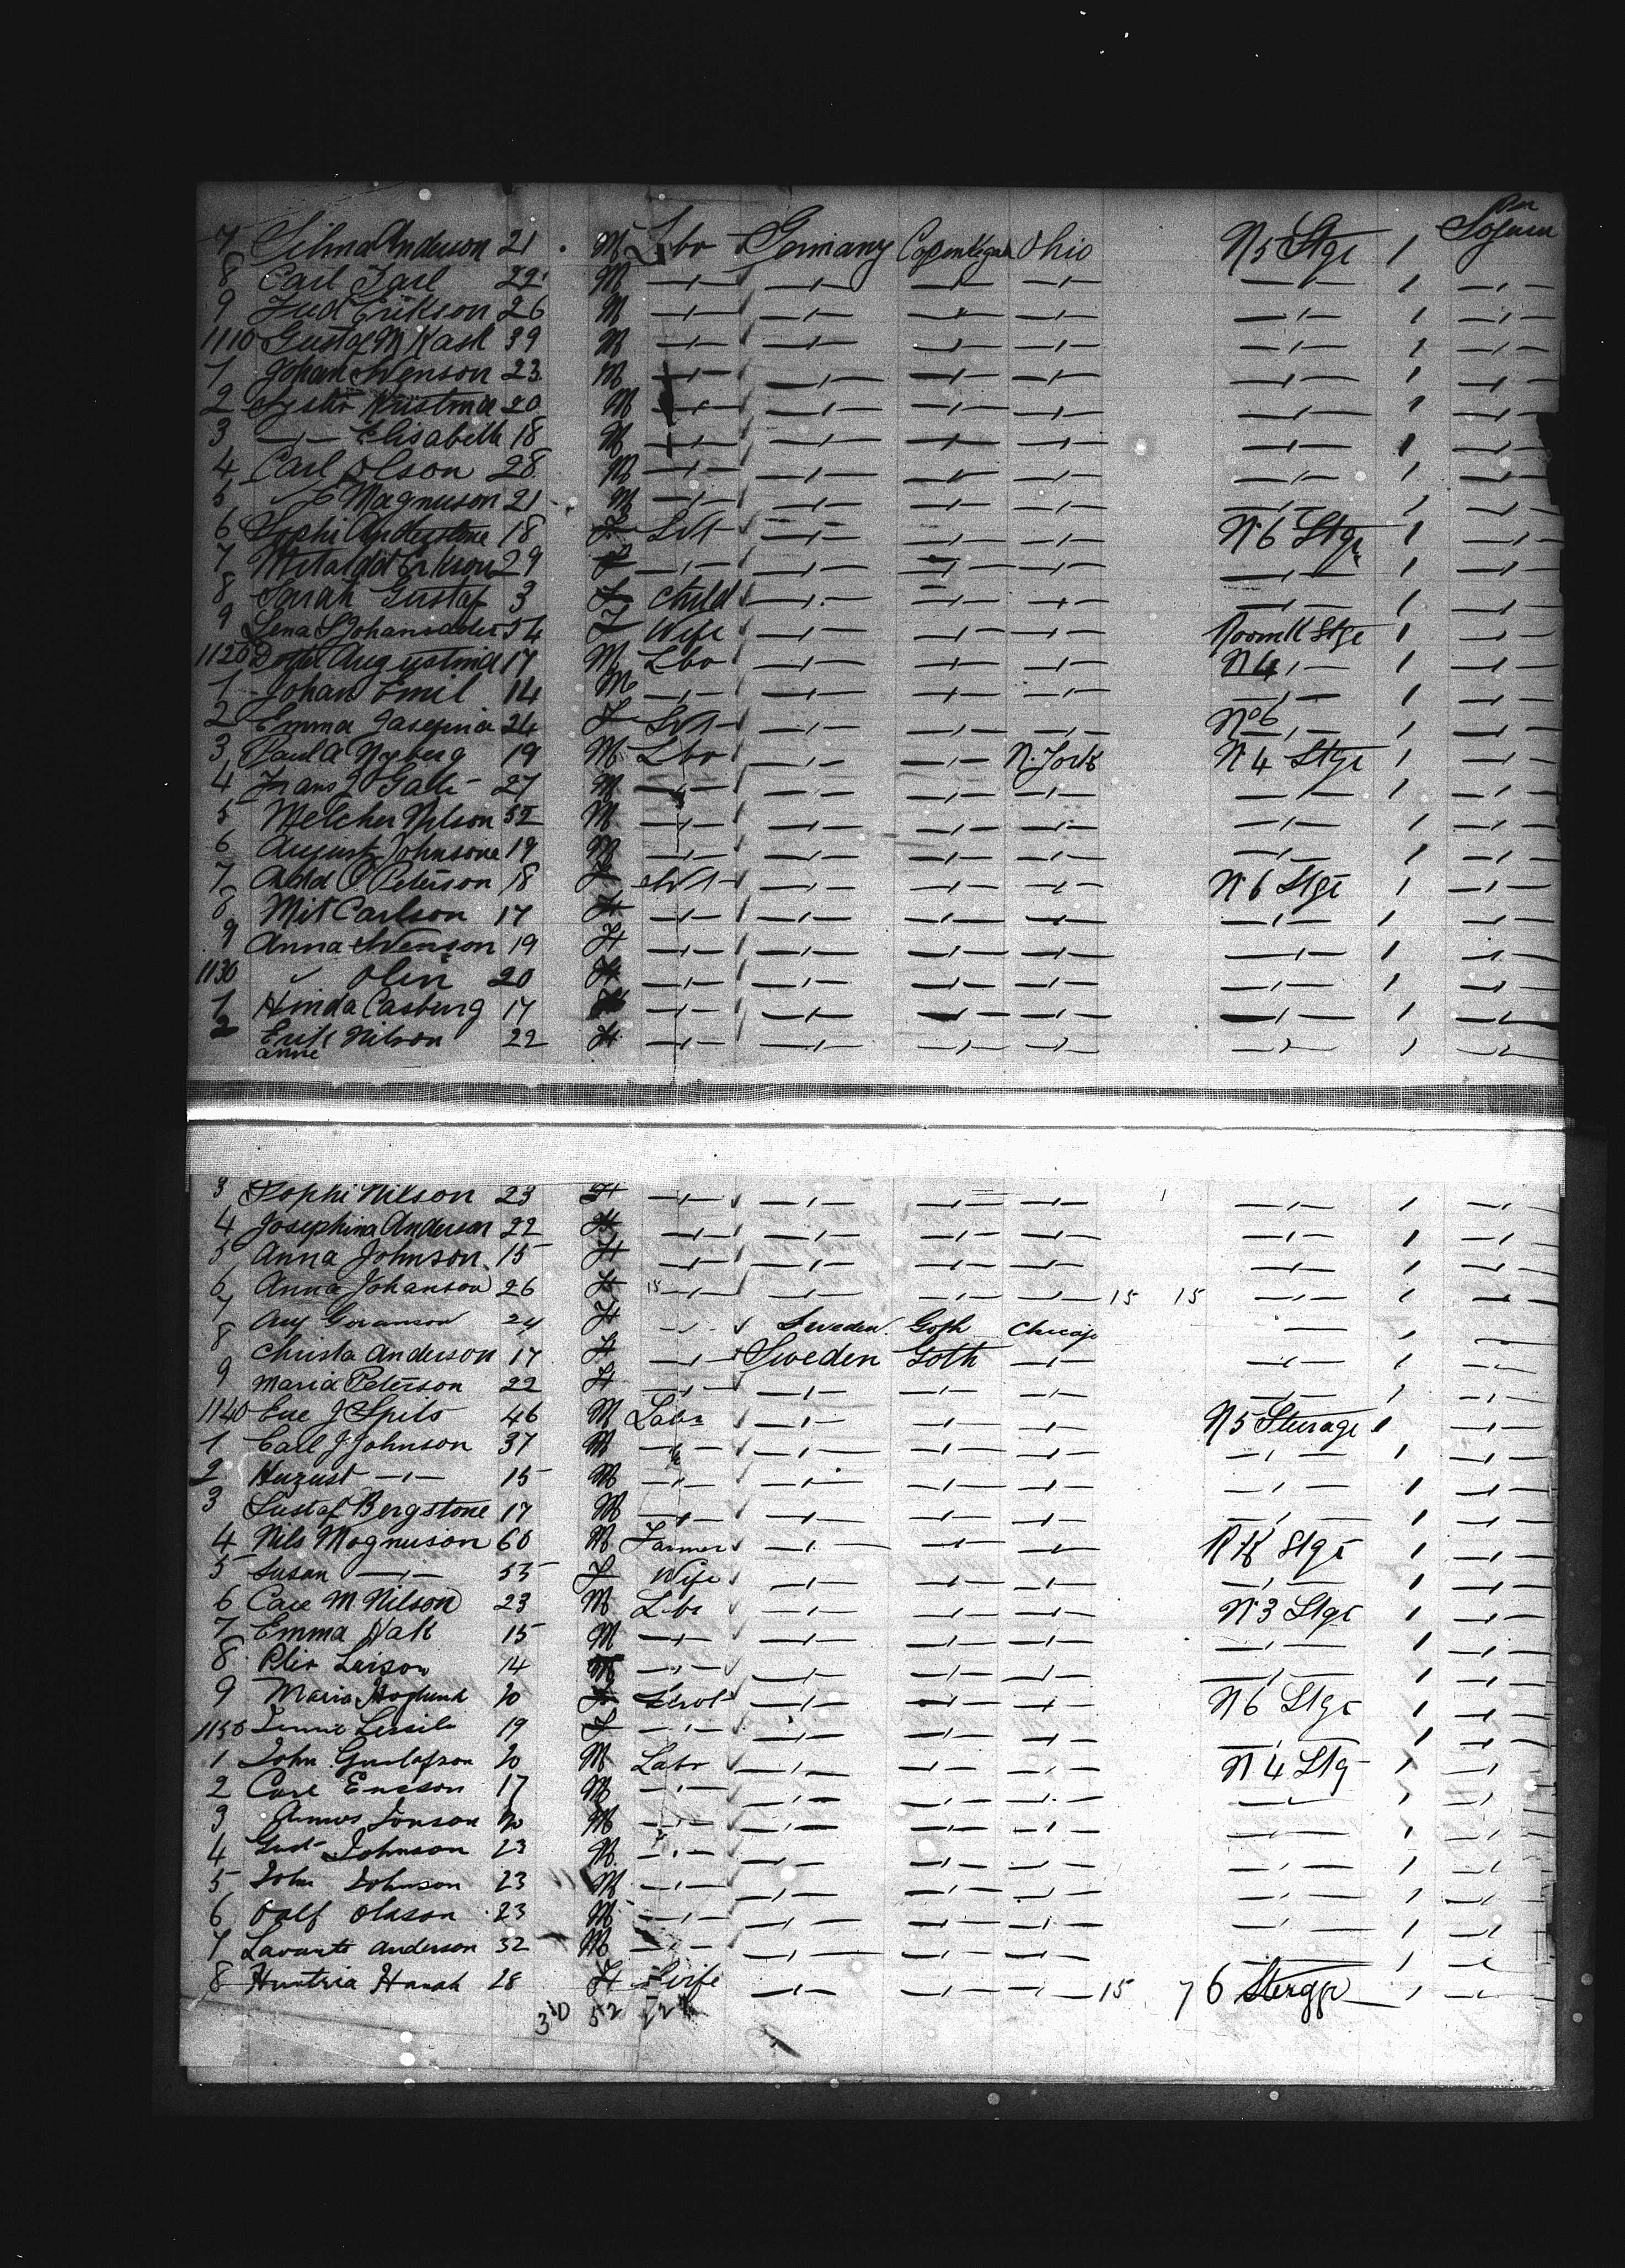 7 Silma Anderson 21 . M Lbr Germany Copenhagen Ohio N5 Stge 1 Per Sojourn
8 Carl Carl 22 M —"— —"— —"— —"— —"— 1 —"—
9 Erikson 26 M —"— —"— —"— —"— —"— 1 —"—
1110 Gustaf M Kask 39 M —"— —"— —"— —"— —"— 1 —"—
1 Johan Swenson 23 M —"— —"— —"— —"— —"— 1 —"—
2 Kristina 20 M —"— —"— —"— —"— —"— 1 —"—
3 —"— Elisabeth 18 M —"— —"— —"— —"— —"— 1 —"—
4 Carl Olson 28 M —"— —"— —"— —"— —"— 1 —"—
5 Magnuson 21 M —"— —"— —"— —"— —"— 1 —"—
6 Sophi 18 F Svt —"— —"— —"— N6 Stge 1 —"—
7 Erkson 29 F —"— —"— —"— —"— —"— 1 —"—
8 Sarah Gustaf 3 F Child —"— —"— —"— —"— 1 —"—
9 Lena 54 F Wife —"— —"— —"— Room K Stge 1 —"—
1120 Augustina 17 M Lbr —"— —"— —"— N4 —"— 1 —"—
1 Johan Emil 14 M —"— —"— —"— —"— —"— 1 —"—
2 Emma Jasefina 24 F Svt —"— —"— —"— No6 —"— 1 —"—
3 Paul A Nyberg 19 M Lbr —"— —"— N. York N4 Stge 1 —"—
4 Frans 27 M —"— —"— —"— —"— —"— 1 —"—
5 Melcher Nilson 52 M —"— —"— —"— —"— —"— 1 —"—
6 August Johnsone 19 M —"— —"— —"— —"— —"— 1 —"—
7 Peterson 18 F Svt —"— —"— —"— N6 Stge 1 —"—
8 Mit Carlson 17 F —"— —"— —"— —"— —"— 1 —"—
9 Anna Swenson 19 F —"— —"— —"— —"— —"— 1 —"—
1130 " Olen 20 F —"— —"— —"— —"— —"— 1 —"—
1 Hinda Casburg 17 F —"— —"— —"— —"— —"— 1 —"—
2 Erik Nilson 22 F —"— —"— —"— —"— —"— 1 —"—
anne
3 Sophi Nilson 23 F —"— —"— —"— —"— —"— 1 —"—
4 Josephina Anderson 22 F —"— —"— —"— —"— —"— 1 —"—
5 Anna Johnson 15 F —"— —"— —"— —"— —"— 1 —"—
6 Anna Johanson 26 F 15 —"— —"— —"— —"— 15 15 —"— 1 —"—
7 Goranson 24 F —"— Sweden Goth Chicago — 1 —
8 Christa Anderson 17 F —"— Sweden Goth —"— —"— 1 —"—
9 Maria Peterson 22 F —"— —"— —"— —"— —"— 1 —"—
1140 Eue J Spils 46 M Labr —"— —"— —"— N5 Sturage 1 —"—
1 Carl J Johnson 37 M —"— —"— —"— —"— —"— 1 —"—
2 August —"— 15 M —"— —"— —"— —"— —"— 1 —"—
3 Gustaf Bergstone 17 M —"— —"— —"— —"— —"— 1 —"—
4 Nils Magnuson 60 M Farmer —"— —"— —"— R K Stge 1 —"—
5 Susan —"— 55 F Wife —"— —"— —"— —"— 1 —"—
6 M. Nilson 23 M Lbr —"— —"— —"— N3 Stge 1 —"—
7 Emma Hak 15 M —"— —"— —"— —"— —"— 1 —"—
8 Larson 14 M —"— —"— —"— —"— —"— 1 —"—
9 Maria Hoglund 20 F Servt —"— —"— —"— N6 Stge 1 —"—
1150 19 F —"— —"— —"— —"— —"— 1 —"—
1 John Gustafson 20 M Labr —"— —"— —"— N4 Stg 1 —"—
2 Carl Ericson 17 M —"— —"— —"— —"— —"— 1 —"—
3 Jonson 20 M —"— —"— —"— —"— —"— 1 —"—
4 Gust Johnson 23 M —"— —"— —"— —"— —"— 1 —"—
5 John Johnson 23 M —"— —"— —"— —"— —"— 1 —"—
6 Oalf Olsson 23 M —"— —"— —"— —"— —"— 1 —"—
7 Anderson 32 M —"— —"— —"— —"— —"— 1 —"—
8 Hanah 28 F Wife —"— —"— —"— 15 76 1 —"—
30 52